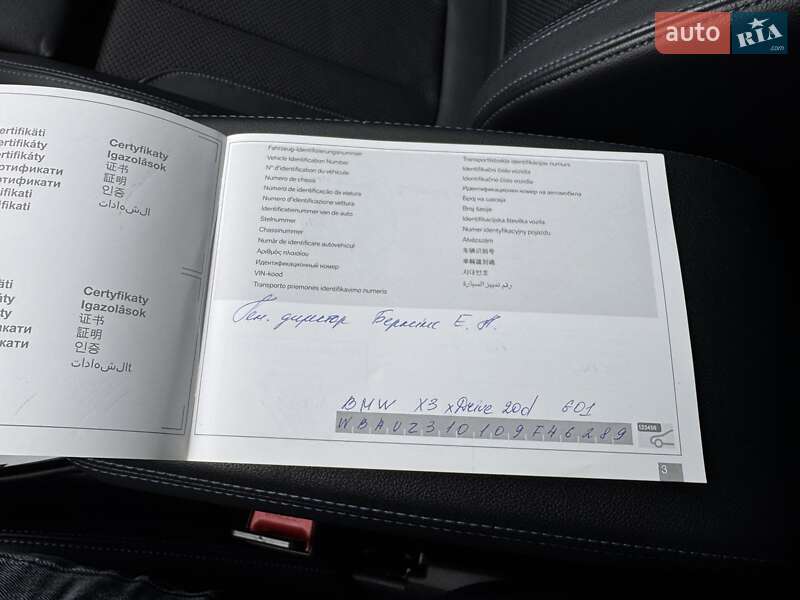 auto RIA .com
ertifikāti
ertifikáty
ертификати
ertifikati
ertifikati
Certyfikaty
Igazolások
证书
証明
인증
Certyfikaty
Igazolások
证书
証明
인증
Fahrzeug-Identifizierungsnummer
Vehicle Identification Number
N° d'identification du véhicule
Numero de chasis
Numero de identificação da viatura
Numero d'identificazione vettura
Identificatienummer van de auto
Stelnummer
Chassinummer
Număr de identificare autovehicul
Αριθμός πλαισίου
Идентификационный номер
VIN-kood
Transporto priemonės identifikavimo numeris
Transportlīdzekļa identifikācijas numurs
Identifikační číslo vozidla
Identifikačné číslo vozidla
Идентификационен номер на автомобила
Број на шасија
Broj šasije
Identifikacijska številka vozila
Numer identyfikacyjny pojazdu
Alvázszám
车辆识别号
车輛識別碼
차대번호
رقم تمييز السيارة
Ген. директор Е. А.
BMW X3 xDrive 20d G01
WBAUZ310109F46289
123456
3